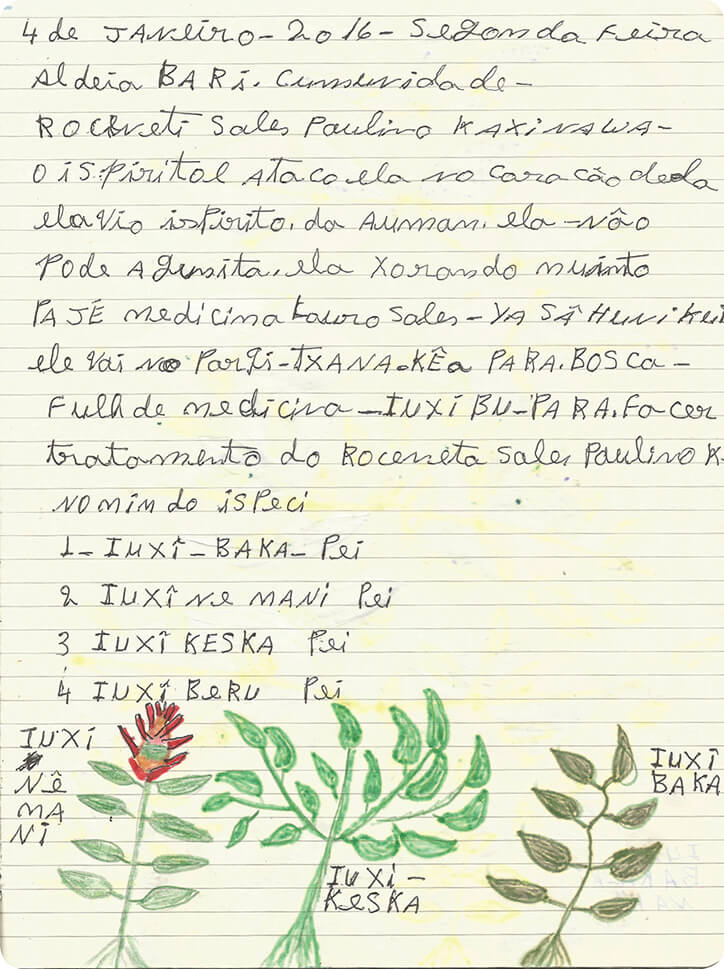 4 de JANeiro - 2016 - Segonda Feira
Aldeia BARi. Cumunidade -
ROCENeti Sales Paulino KAXINAWA -
O iSPiritol ATACO ela no coração dela
ela vio ispirito. da Auman. ela - não
Pode Aguenita. ela Xorando muinto
PAJÉ medicina Lauro Sales - YA SÃ Huni Kui
ele vai no Parqi - TXANA - KÊa PARA. BOSCa -
Fulh de medicina - IUXI BU - PARA. Facer
tratamento do Roceneta Sales Paulino K.
NOMin do iSPeci
1 - IUXÎ - BAKA - Pei
2 IUXÎ Ne MANi Pei
3 IUXÎ KESKA Pei
4 IUXÎ BeRU Pei
IUXÍ
NÊ
MA
NI
IUXI -
KeSKA
IUXÎ
BAKA